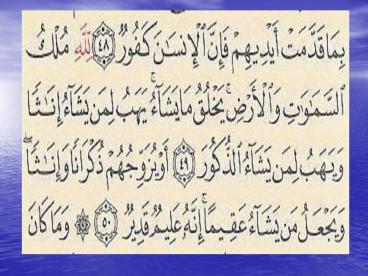 بِمَا قَدَّمَتْ أَيْدِيهِمْ فَإِنَّ ٱلْإِنسَٰنَ كَفُورٌ ٤٨ لِّلَّهِ مُلْكُ
ٱلسَّمَٰوَٰتِ وَٱلْأَرْضِ ۚ يَخْلُقُ مَا يَشَآءُ ۚ يَهَبُ لِمَن يَشَآءُ إِنَٰثًا
وَيَهَبُ لِمَن يَشَآءُ ٱلذُّكُورَ ٤٩ أَوْ يُزَوِّجُهُمْ ذُكْرَانًا وَإِنَٰثًا ۖ
وَيَجْعَلُ مَن يَشَآءُ عَقِيمًا ۚ إِنَّهُۥ عَلِيمٌ قَدِيرٌ ٥٠ ۞ وَمَا كَانَ